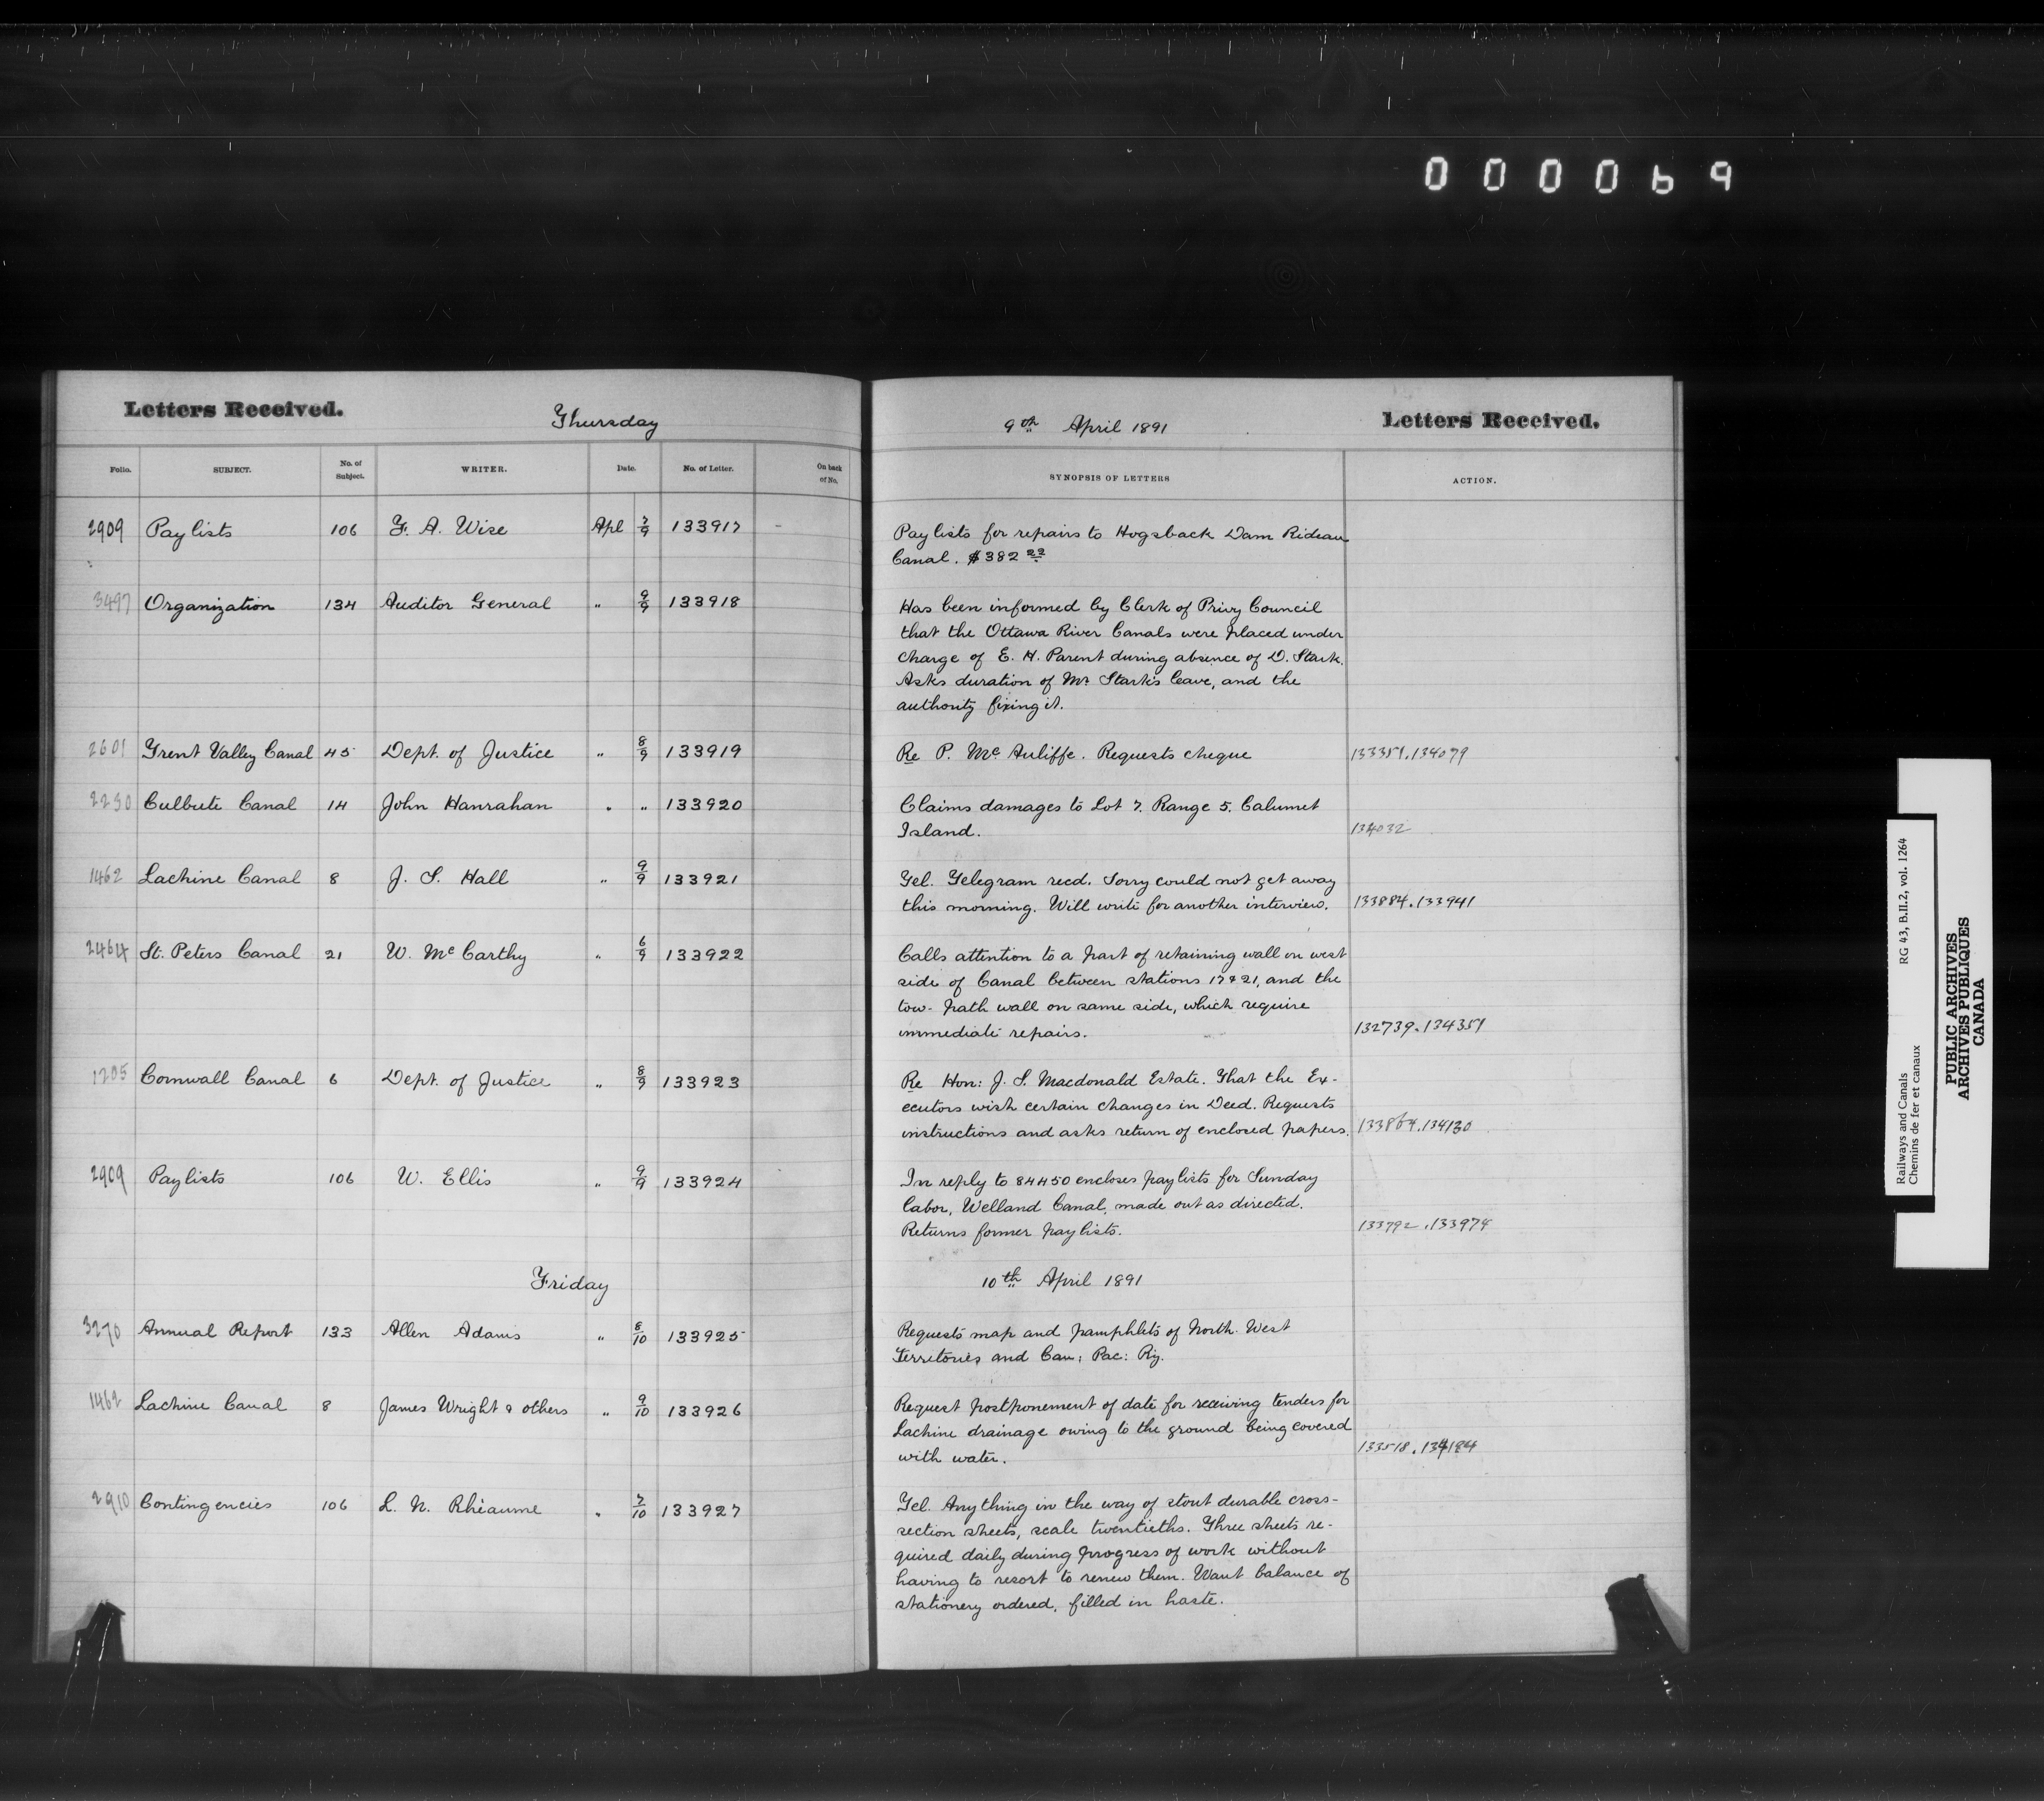 000069
Letters Received.
Thursday
Folio. SUBJECT. No. of Subject. WRITER. Date. No. of Letter. On back of No.
2909 Paylists 106 F. A. Wise Apl 7/9 133917 -
3497 Organization 134 Auditor General " 9/9 133918
2601 Trent Valley Canal 45 Dept. of Justice " 8/9 133919
2230 Culbute Canal 14 John Hanrahan " " 133920
1462 Lachine Canal 8 J. S. Hall " 9/9 133921
2464 St. Peters Canal 21 W. McCarthy " 6/9 133922
1205 Cornwall Canal 6 Dept. of Justice " 8/9 133923
2909 Paylists 106 W. Ellis " 9/9 133924
Friday
3270 Annual Report 133 Allen Adams " 8/10 133925
1462 Lachine Canal 8 James Wright & others " 9/10 133926
2910 Contingencies 106 L. N. Rhéaume " 7/10 133927
9th April 1891
Letters Received.
SYNOPSIS OF LETTERS ACTION.
Paylists for repairs to Hogsback Dam Rideau
Canal. $382 22
Has been informed by Clerk of Privy Council
that the Ottawa River Canals were placed under
charge of E. H. Parent during absence of D. Stark.
Asks duration of Mr. Stark's leave, and the
authority fixing it.
Re P. McAuliffe. Requests cheque 133351.134079
Claims damages to Lot 7. Range 5. Calumet
Island. 134032
Tel. Telegram recd. Sorry could not get away
this morning. Will write for another interview. 133884.133941
Calls attention to a part of retaining wall on west
side of Canal between stations 17 & 21, and the
tow-path wall on same side, which require
immediate repairs. 132739.134351
Re Hon: J. S. Macdonald Estate. That the Ex-
ecutors wish certain changes in Deed. Requests
instructions and asks return of enclosed papers. 133864.134130
In reply to 84450 encloses paylists for Sunday
labor, Welland Canal, made out as directed.
Returns former paylists. 133792.133974
10th April 1891
Requests map and pamphlets of North-West
Territories and Can: Pac: Ry.
Request postponement of date for receiving tenders for
Lachine drainage owing to the ground being covered
with water. 133518.134184
Tel. Anything in the way of stout durable cross-
section sheets, scale twentieths. Three sheets re-
quired daily during progress of work without
having to resort to renew them. Want balance of
stationery ordered, filled in haste.
Railways and Canals RG 43, B.II.2, vol. 1264
Chemins de fer et canaux
PUBLIC ARCHIVES
ARCHIVES PUBLIQUES
CANADA